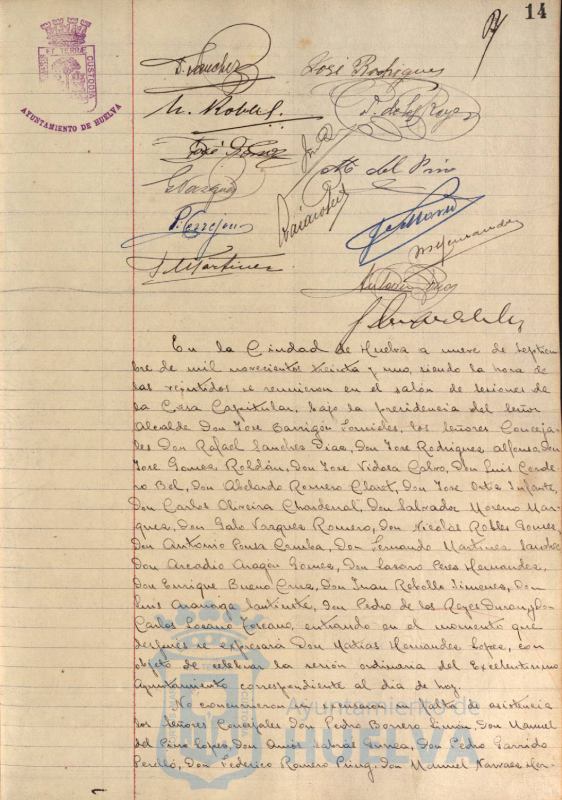 14
ET TERRÆ
CUSTODIA
AYUNTAMIENTO DE HUELVA
José Rodrigues
P. de los Reyes
M. del Pino
J. Martinez
M Hernandez
En la Ciudad de Huelva a nueve de Septiem-
bre de mil novecientos treinta y uno, siendo la hora de
las se reunieron en el salón de sesiones de
la Casa Capitular, bajo la presidencia del Señor
Alcalde Don Jose Barrigón Fornieles, los señores Conceja-
les Don Rafael Sanchez Diaz, Don Jose Rodriguez Alfonso, Don
Jose Gomez Roldán, Don Jose Vidosa Calvo, Don Luis Corde-
ro Bel, Don Abelardo Romero Claret, Don Jose Ortiz Infante,
Don Carlos Oliveira Chardenal, Don Salvador Moreno Mar-
quez, Don Galo Vazquez Romero, Don Nicolas Robles Gomez,
Don Antonio Ponsa Don Fernando Martinez Sanchez
Don Arcadio Aragón Gomez, Don Lazaro Perez Hernandez,
Don Enrique Bueno Cruz, Don Juan Rebollo Jimenez, Don
Luis Don Pedro de los Reyes Duran y Don
Carlos Lozano entrando en el momento que
despues se expresará Don Matías Hernandez Lopez, con
objeto de celebrar la sesión ordinaria del Excelentisimo
Ayuntamiento correspondiente al dia de hoy.
No concurrieron ni excusaron su falta de asistencia
los Señores Concejales Don Pedro Borrero Limón, Don Manuel
del Pino Lopez, Don Amós Sabrás Gurrea, Don Pedro Garrido
Perelló, Don Federico Romero Don Manuel Narvaez Mor-
Ayuntamiento de
HUELVA